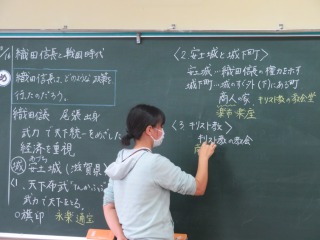 織田信長と戦国時代
め
織田信長は、どのような政策を行ったのだろう。
織田信長 尾張出身
武力で天下統一をめざした
経済を重視
城 安土城（滋賀県）
1. 天下布武
武力で天下をとる。
○旗印 永楽通宝
〈2 安土城と城下町〉
安土城…織田信長の権力を示す
城下町…城のすぐ外(下)にある町
商人の家 キリスト教の教会堂
楽市・楽座
〈3 キリスト教〉
キリスト教の教会